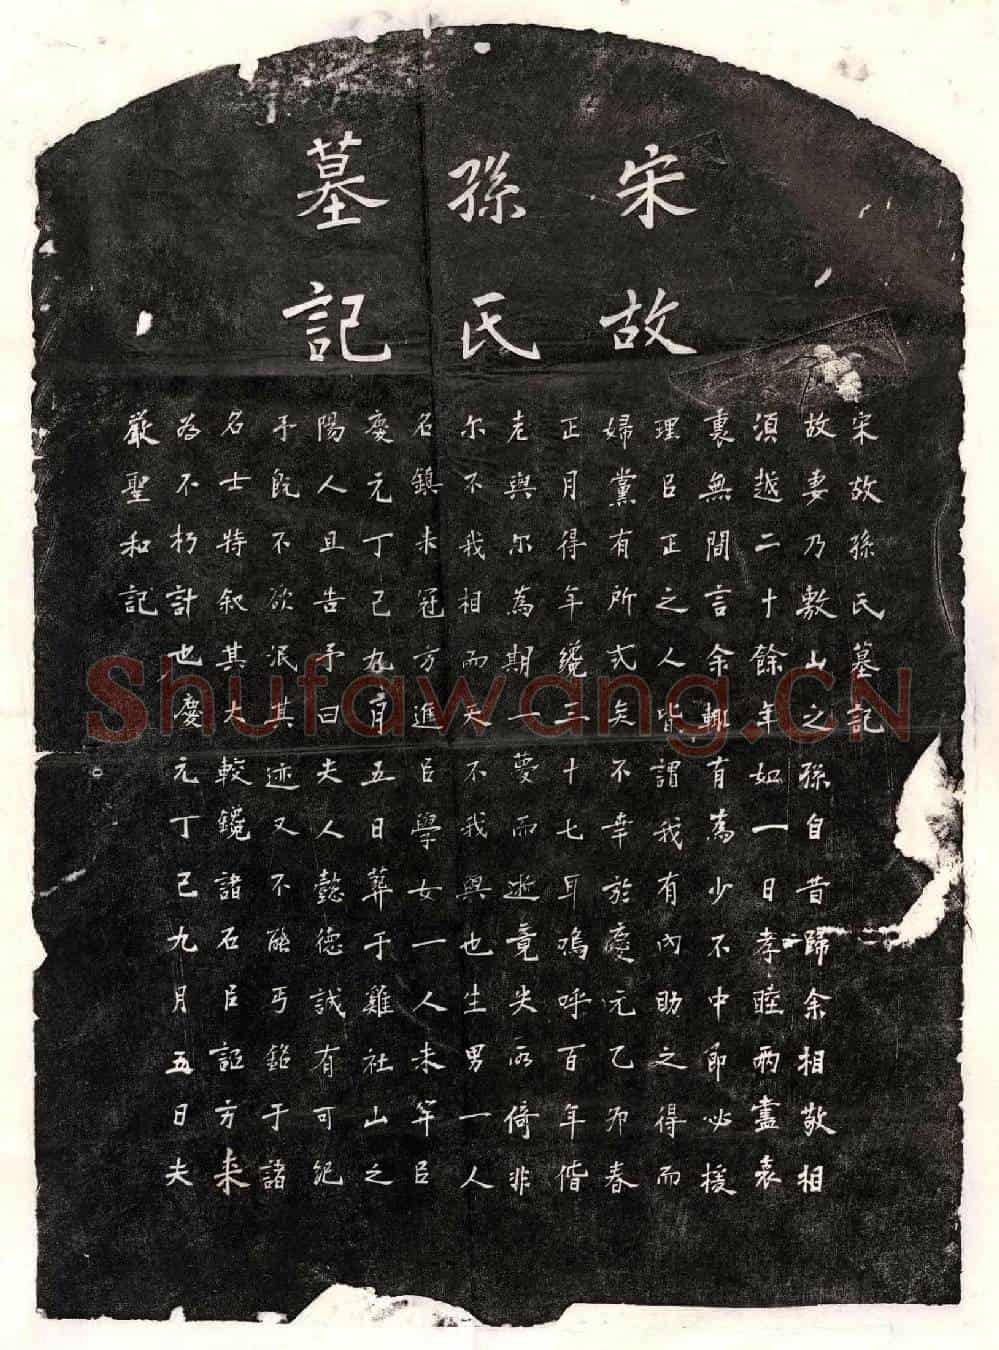 宋故
孫氏
墓記
宋故孫氏墓記
故妻乃敷山之孫自昔歸余相敬相
須越二十餘年如一日孝睦兩盡表
裏無間言余輒有為少不中節必援
理㠯正之人皆謂我有內助之得而
婦黨有所式矣不幸於慶元乙卯春
正月得年纔三十七耳嗚呼百年偕
老與尔為期一夢而逝竟失所倚非
尔不我相而天不我與也生男一人
名鎮未冠方進㠯學女一人未筓㠯
慶元丁巳九月五日葬于雞社山之
陽人且告予曰夫人懿德誠有可紀
予既不欲泯其迹又不能丐銘于諸
名士特叙其大較鑱諸石㠯詔方来
為不朽計也慶元丁巳九月五日夫
嚴聖和記
Shufawang.CN